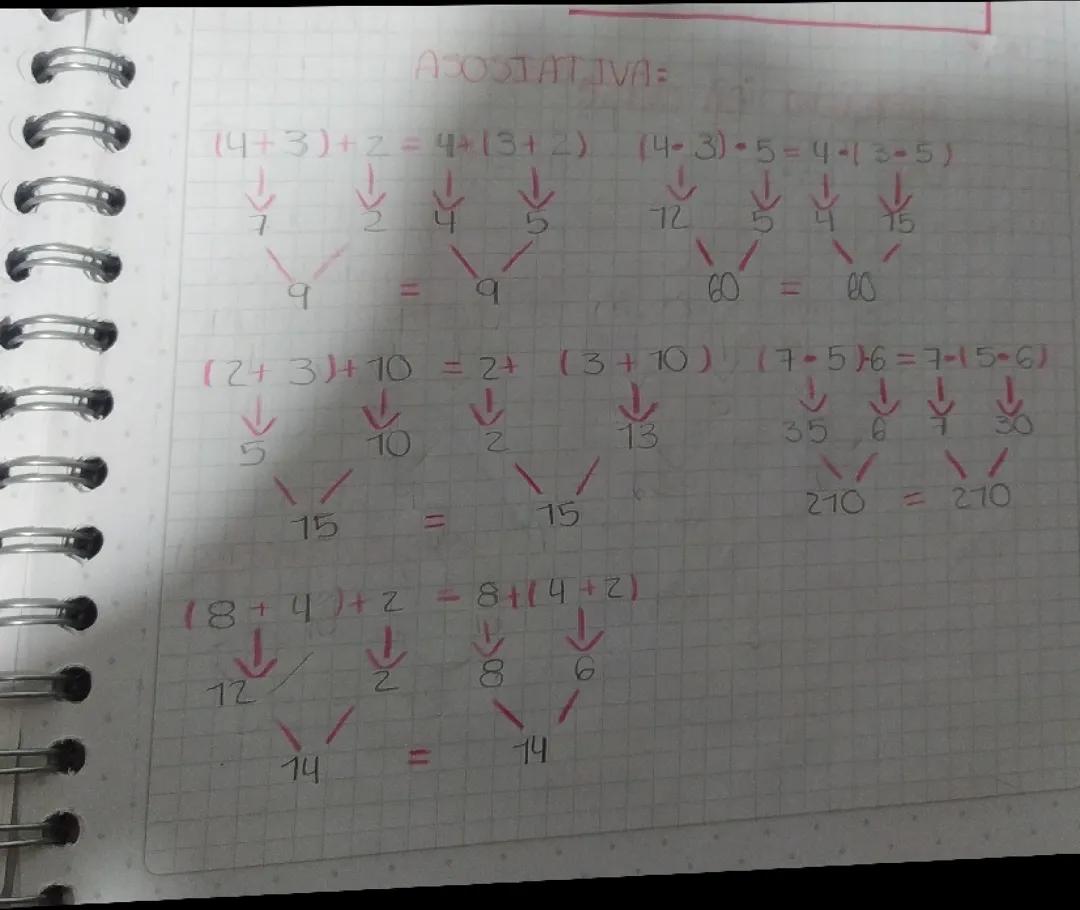 ASOSIATIVA:
(4+3)+2=4+(3+2) (4·3)·5=4·(3·5)
7 2 4 5 12 5 4 15
9 = 9 60 = 60
(2+3)+10 = 2+ (3+10) (7·5)·6=7·(5·6)
5 10 2 13 35 6 7 30
15 = 15 210 = 210
(8+4)+2 = 8+(4+2)
12 2 8 6
14 = 14